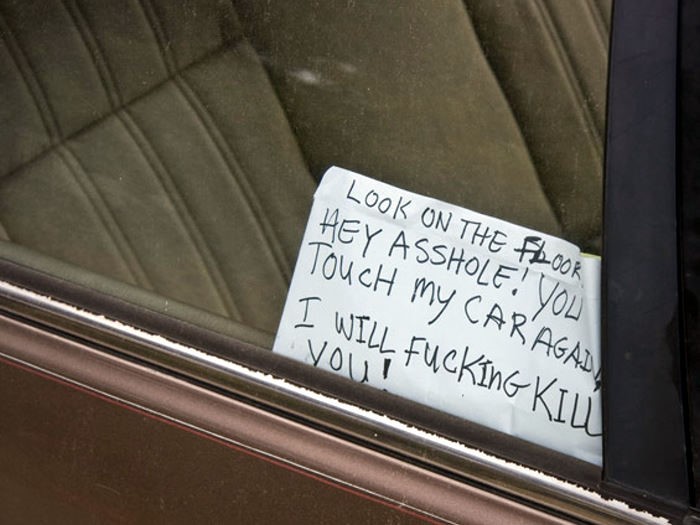 LOOK ON THE FLOOR
HEY ASSHOLE! YOU
TOUCH MY CAR AGAIN
I WILL FUCKING KILL
YOU!